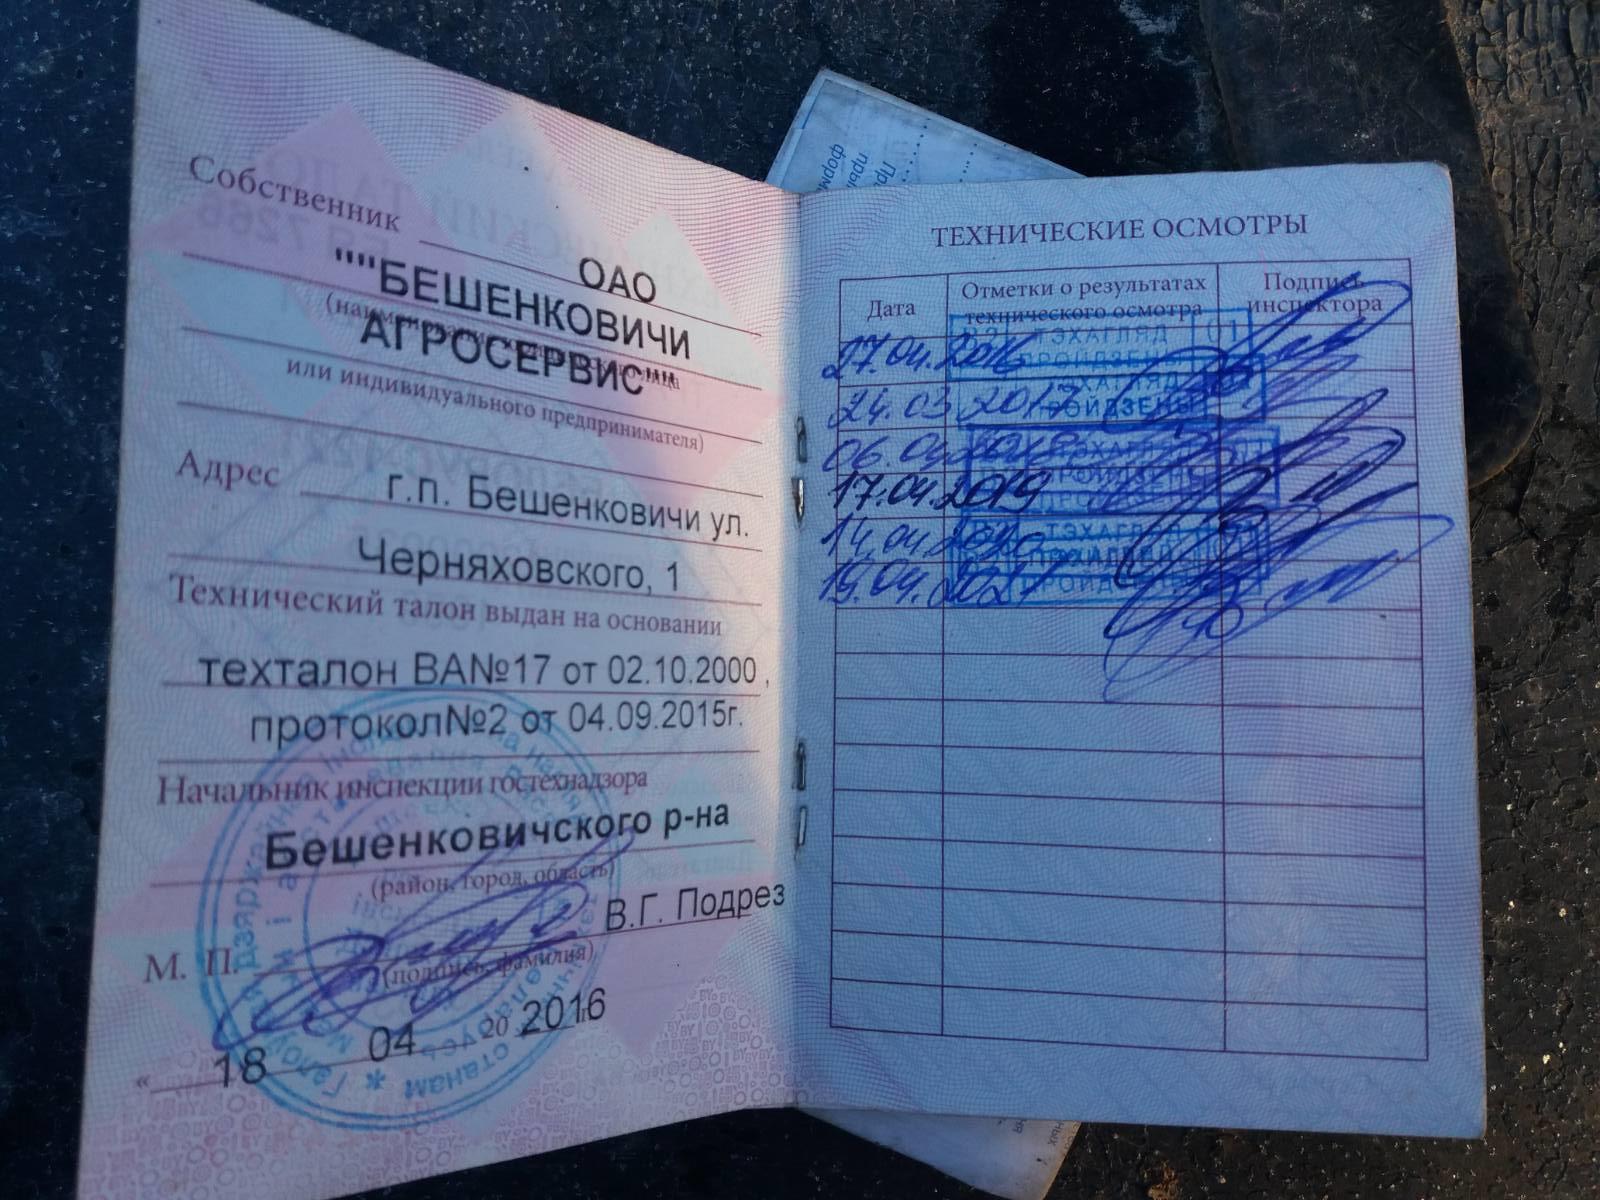 Собственник
ОАО
""БЕШЕНКОВИЧИ
АГРОСЕРВИС""
или индивидуального предпринимателя)
Адрес
г.п. Бешенковичи ул.
Черняховского, 1
Технический талон выдан на основании
техталон ВА№17 от 02.10.2000 ,
протокол№2 от 04.09.2015г.
Начальник инспекции гостехнадзора
Бешенковичского р-на
(район, город, область)
В.Г. Подрез
М. П.
(подпись, фамилия)
« 18 04 20 2016
ТЕХНИЧЕСКИЕ ОСМОТРЫ
Дата
Отметки о результатах технического осмотра
Подпись инспектора
27.04.2016
ТЭХАГЛЯД 01
ПРОЙДЗЕНЫ
24.03.2017
ТЭХАГЛЯД
ПРОЙДЗЕНЫ
17.04.2019
14.04.2020
ТЭХАГЛЯД
19.04.2021